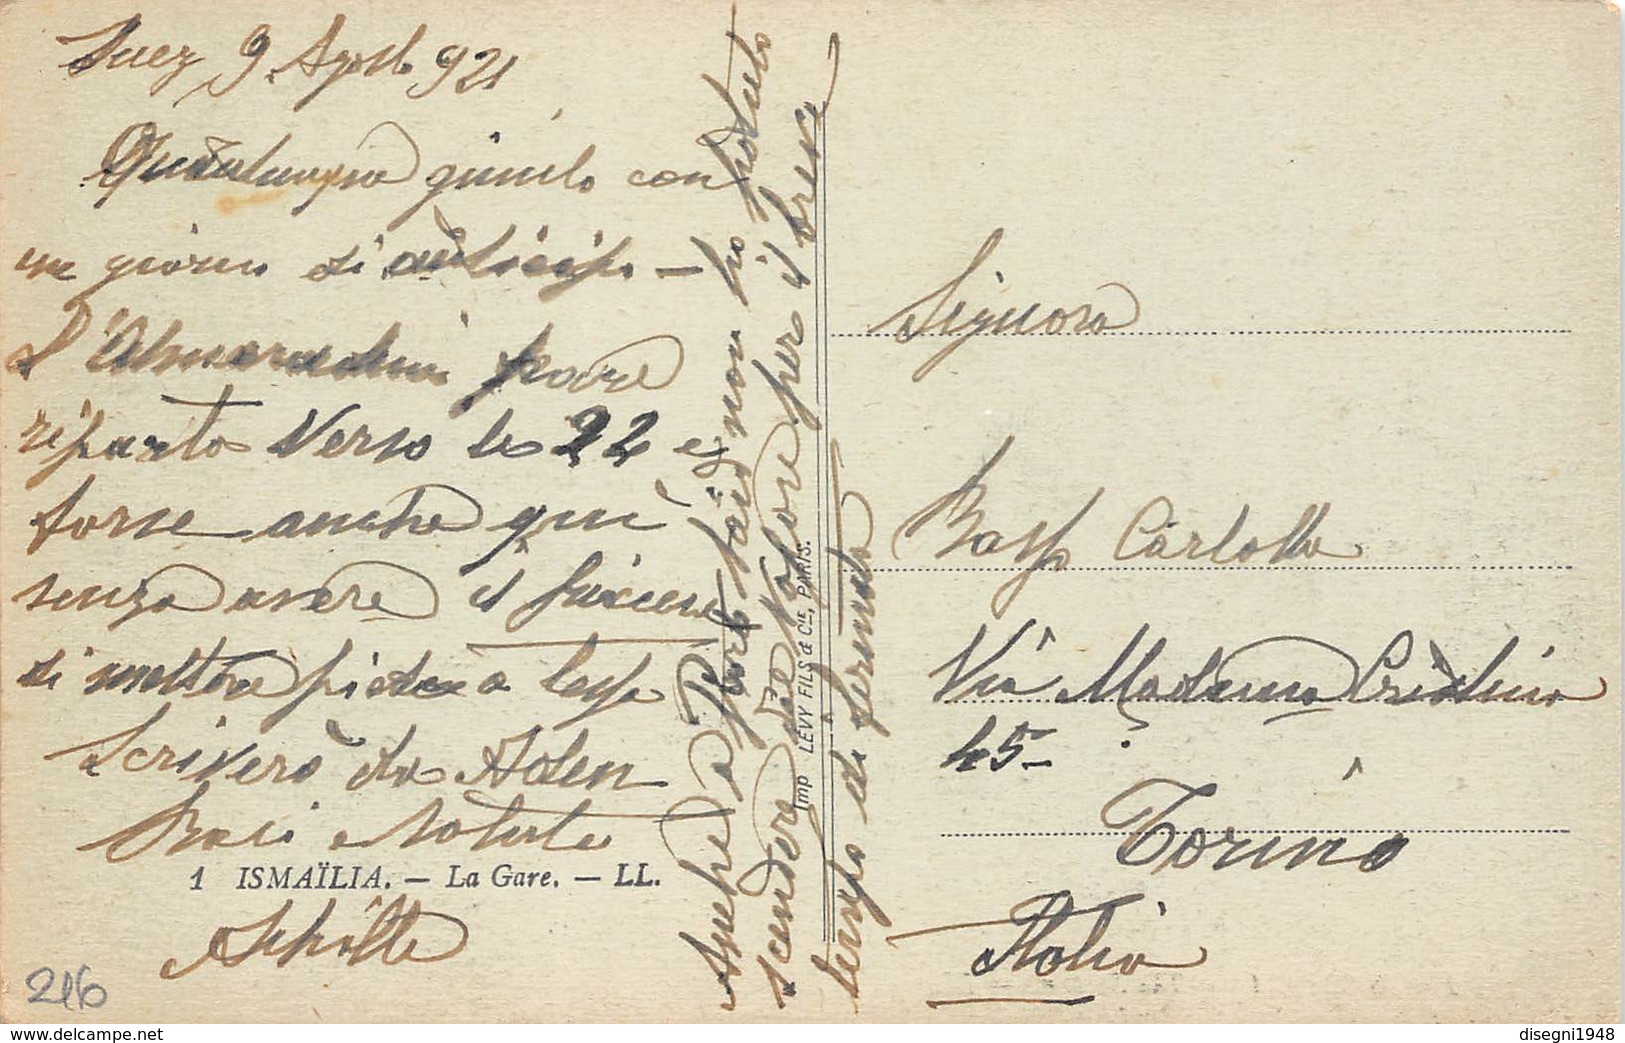 Suez, 9 Agosto 921
giunto con
un giorno di anticipo –
pare
riparto verso le 22 e
forse anche qui
senza avere il piacere
di mettere piede a
Scriverò da Aden
Baci e salute
Achille
Anche a Port Said non ho potuto
scendere per il breve
tempo di fermata
1 ISMAÏLIA. – La Gare. – LL.
Imp LÉVY FILS & Cie, PARIS.
Signora
Carlotta
Via Madama Cristina
45 –
Torino
Italia
216
www.delcampe.net
disegni1948